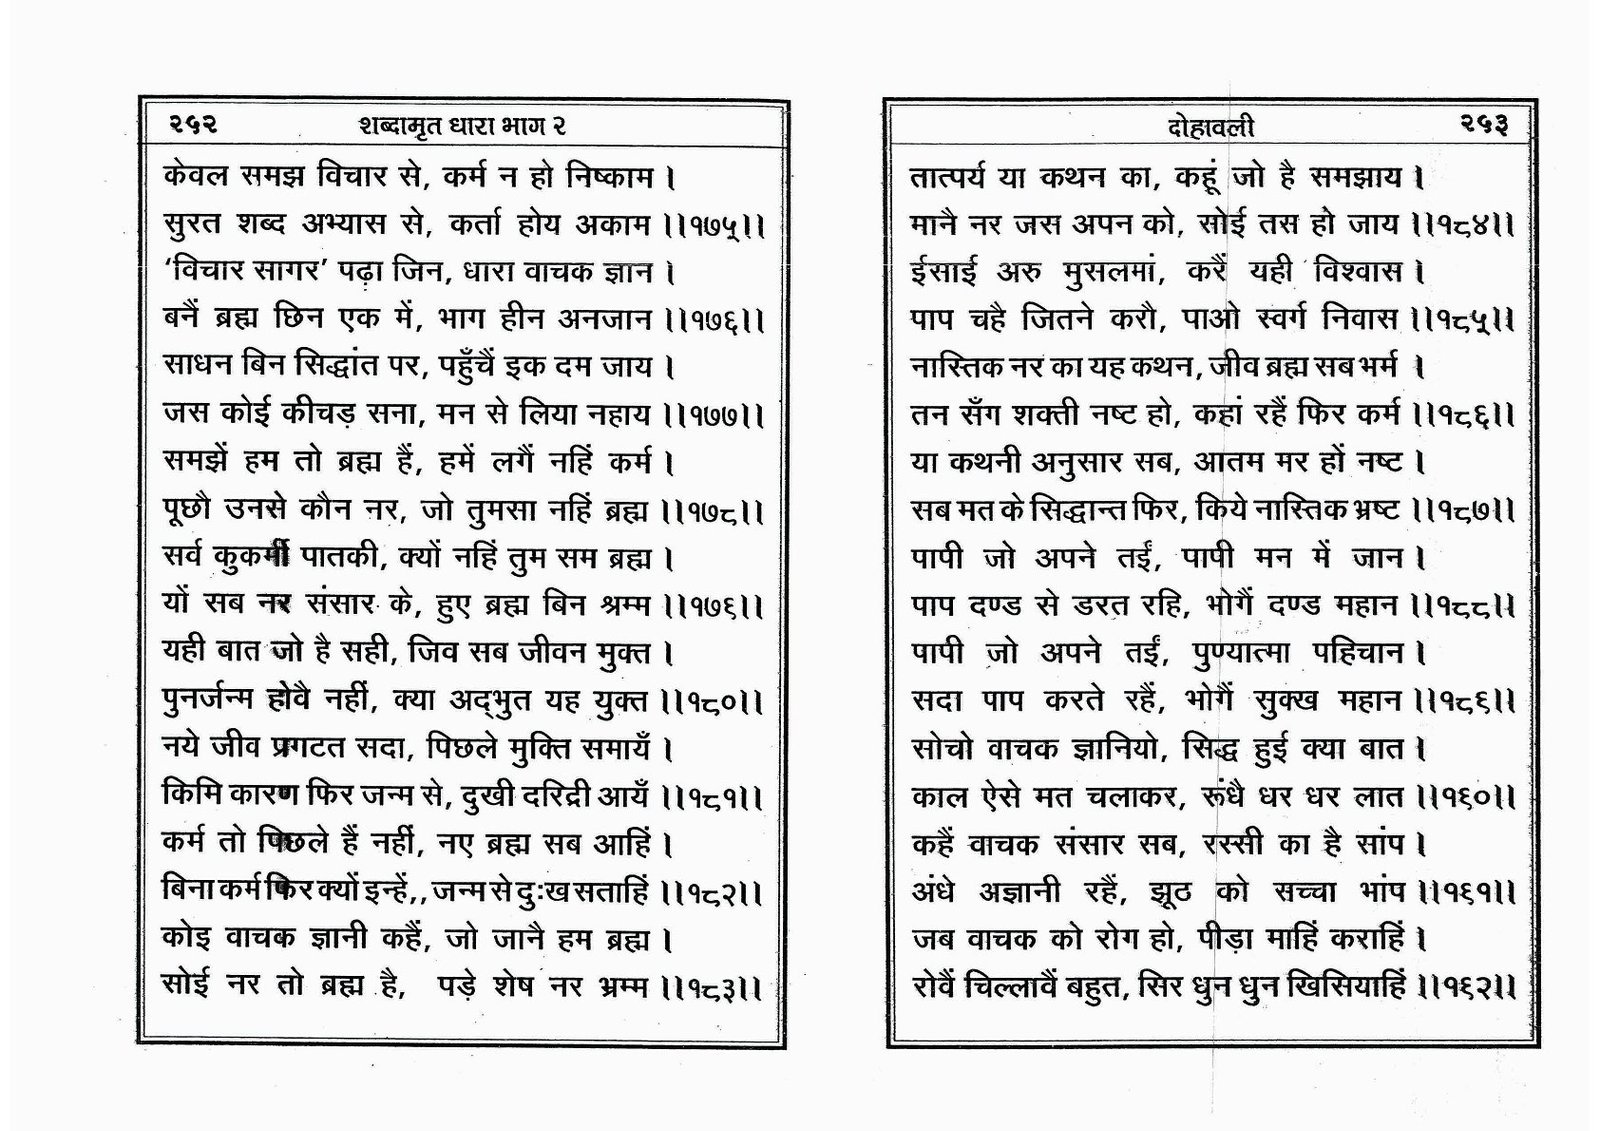 २५२ शब्दामृत धारा भाग २
केवल समझ विचार से, कर्म न हो निष्काम ।
सुरत शब्द अभ्यास से, कर्ता होय अकाम ।।१७५।।
‘विचार सागर’ पढ़ा जिन, धारा वाचक ज्ञान ।
बनैं ब्रह्म छिन एक में, भाग हीन अनजान ।।१७६।।
साधन बिन सिद्धांत पर, पहुँचैं इक दम जाय ।
जस कोई कीचड़ सना, मन से लिया नहाय ।।१७७।।
समझें हम तो ब्रह्म हैं, हमें लगैं नहिं कर्म ।
पूछौ उनसे कौन नर, जो तुमसा नहिं ब्रह्म ।।१७८।।
सर्व कुकर्मी पातकी, क्यों नहिं तुम सम ब्रह्म ।
यों सब नर संसार के, हुए ब्रह्म बिन श्रम्म ।।१७९।।
यही बात जो है सही, जिव सब जीवन मुक्त ।
पुनर्जन्म होवै नहीं, क्या अद्भुत यह युक्त ।।१८०।।
नये जीव प्रगटत सदा, पिछले मुक्ति समायँ ।
किमि कारण फिर जन्म से, दुखी दरिद्री आयँ ।।१८१।।
कर्म तो पिछले हैं नहीं, नए ब्रह्म सब आहिं ।
बिना कर्म फिर क्यों इन्हें,, जन्म से दुःख सताहिं ।।१८२।।
कोइ वाचक ज्ञानी कहैं, जो जानै हम ब्रह्म ।
सोई नर तो ब्रह्म है, पड़े शेष नर भ्रम्म ।।१८३।।
दोहावली २५३
तात्पर्य या कथन का, कहूं जो है समझाय ।
मानै नर जस अपन को, सोई तस हो जाय ।।१८४।।
ईसाई अरु मुसलमां, करैं यही विश्वास ।
पाप चहै जितने करौ, पाओ स्वर्ग निवास ।।१८५।।
नास्तिक नर का यह कथन, जीव ब्रह्म सब भर्म ।
तन सँग शक्ती नष्ट हो, कहां रहैं फिर कर्म ।।१८६।।
या कथनी अनुसार सब, आतम मर हों नष्ट ।
सब मत के सिद्धान्त फिर, किये नास्तिक भ्रष्ट ।।१८७।।
पापी जो अपने तईं, पापी मन में जान ।
पाप दण्ड से डरत रहि, भोगैं दण्ड महान ।।१८८।।
पापी जो अपने तईं, पुण्यात्मा पहिचान ।
सदा पाप करते रहैं, भोगैं सुक्ख महान ।।१८९।।
सोचो वाचक ज्ञानियो, सिद्ध हुई क्या बात ।
काल ऐसे मत चलाकर, रूंधै धर धर लात ।।१९०।।
कहैं वाचक संसार सब, रस्सी का है सांप ।
अंधे अज्ञानी रहैं, झूठ को सच्चा भांप ।।१९१।।
जब वाचक को रोग हो, पीड़ा माहिं कराहिं ।
रोवैं चिल्लावैं बहुत, सिर धुन धुन खिसियाहिं ।।१९२।।